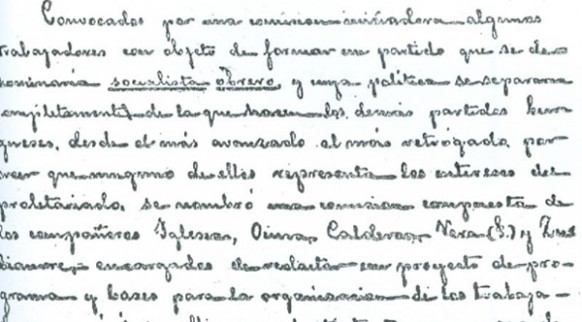 Convocados por una comision iniciadora algunos
trabajadores con objeto de formar un partido que se de-
nominaría socialista obrero, y cuya política se separara
completamente de la que hacen los demás partidos bur-
gueses, desde el más avanzado al más retrógado, por
creer que ninguno de ellos representa los intereses del
proletariado, se nombró una comision compuesta de
los compañeros Iglesias, Ocina, Calderon, Vera (J.) y Zub
biaurre, encargados de redactar un proyecto de pro-
grama y bases para la organizacion de los trabaja-